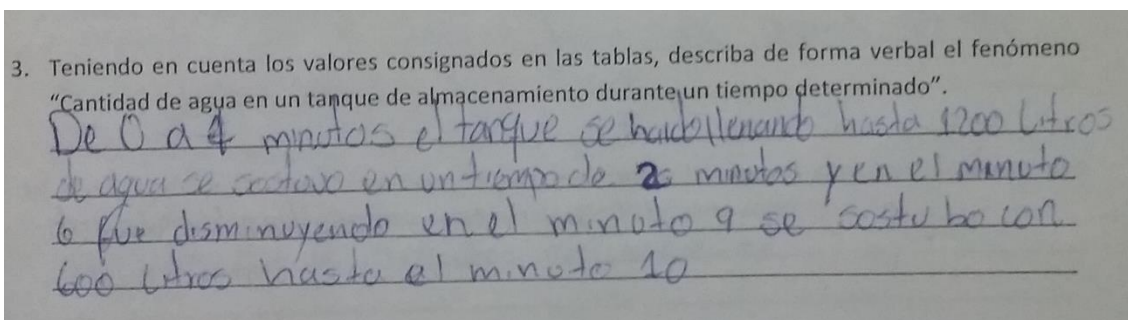 3. Teniendo en cuenta los valores consignados en las tablas, describa de forma verbal el fenómeno
“Cantidad de agua en un tanque de almacenamiento durante un tiempo determinado”.
De 0 a 4 minutos el tanque se ha ido llenando hasta 1200 Litros
de agua se sostuvo en un tiempo de 2 minutos y en el minuto
6 fue disminuyendo en el minuto 9 se sostubo con
600 Litros hasta el minuto 10